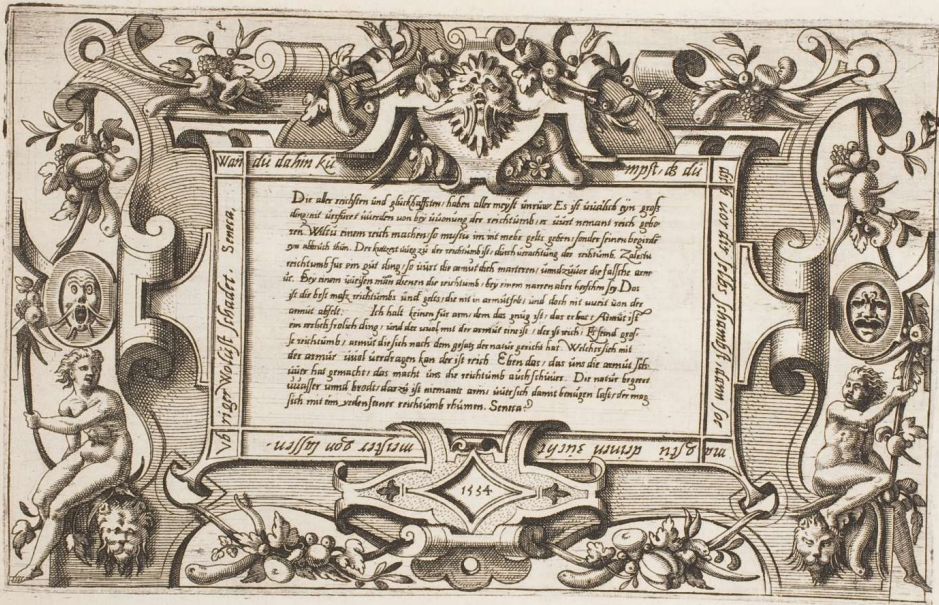 Wan du dahin kü mpst, ds dü
dich vor dir selbs schamst, dann so
magstu deinen zucht meister gon lassen.
Vbriger Wolüst schadet. Seneca,
Die aller reichsten und glückhafftsten, haben aller meyst ünrüw. Es ist wärlich eyn groß
ding, nit verfürt werden von bey wonung der reichtümb, er würt niemant reich gebo
ren. Wiltü einem reich machen, so müstü im nit mehr gelts geben, sonder seinen begirden
eyn abbrüch thün. Der kürzest weg zü der reichtümb ist, dürch verachtung der reichtümb. Zalestu
reichtümb für ein güt ding, so würt die armüt dich marteren, und züvor die falsche arm
üt. Bey einem weisen man dienen die reichtumb, bey einem narren aber herschen sey Das
ist die best maß reichtümbs und gelts, die nit in armüt felt, und doch nit weit von der
armüt abfelt. Ich halt keinen für arm, dem das gnüg ist, das er hat, Armüt ist
ein erberh frolich ding, und der wol mit der armüt eins ist, der ist rich, Es seind gros
se reichtümb, armüt die sich nach dem gesatz der natür gericht hat. Welcher sich mit
der armüt wol verdragen kan der ist reich Eben das, das üns die armüt sch,
wär hat gemacht, das macht üns die reichtümb aüch schwär. Die natür begeret
wasser ünnd brodt, dar zü ist niemants arm, wär sich damit benügen laßt, der mag
sich mit im rhümen. Seneca
1554